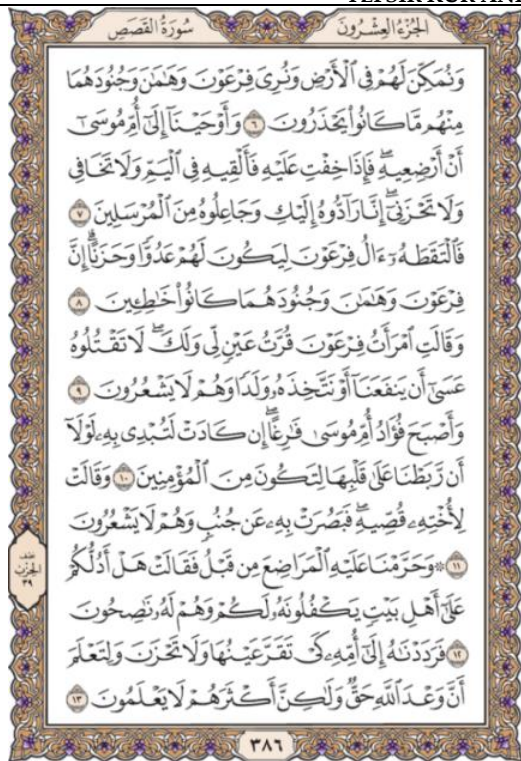 سُورَةُ القَصَصِ
الجُزْءُ العِشْرُونَ
وَنُمَكِّنَ لَهُمْ فِي ٱلْأَرْضِ وَنُرِيَ فِرْعَوْنَ وَهَٰمَٰنَ وَجُنُودَهُمَا
مِنْهُم مَّا كَانُوا۟ يَحْذَرُونَ ٦ وَأَوْحَيْنَآ إِلَىٰٓ أُمِّ مُوسَىٰٓ
أَنْ أَرْضِعِيهِ ۖ فَإِذَا خِفْتِ عَلَيْهِ فَأَلْقِيهِ فِي ٱلْيَمِّ وَلَا تَخَافِي
وَلَا تَحْزَنِيٓ ۖ إِنَّا رَآدُّوهُ إِلَيْكِ وَجَاعِلُوهُ مِنَ ٱلْمُرْسَلِينَ ٧
فَٱلْتَقَطَهُۥٓ ءَالُ فِرْعَوْنَ لِيَكُونَ لَهُمْ عَدُوًّا وَحَزَنًا ۗ إِنَّ
فِرْعَوْنَ وَهَٰمَٰنَ وَجُنُودَهُمَا كَانُوا۟ خَٰطِـِٔينَ ٨
وَقَالَتِ ٱمْرَأَتُ فِرْعَوْنَ قُرَّتُ عَيْنٍ لِّي وَلَكَ ۖ لَا تَقْتُلُوهُ
عَسَىٰٓ أَن يَنفَعَنَآ أَوْ نَتَّخِذَهُۥ وَلَدًا وَهُمْ لَا يَشْعُرُونَ ٩
وَأَصْبَحَ فُؤَادُ أُمِّ مُوسَىٰ فَٰرِغًا ۖ إِن كَادَتْ لَتُبْدِي بِهِۦ لَوْلَآ
أَن رَّبَطْنَا عَلَىٰ قَلْبِهَا لِتَكُونَ مِنَ ٱلْمُؤْمِنِينَ ١٠ وَقَالَتْ
لِأُخْتِهِۦ قُصِّيهِ ۖ فَبَصُرَتْ بِهِۦ عَن جُنُبٍ وَهُمْ لَا يَشْعُرُونَ
١١ ۞ وَحَرَّمْنَا عَلَيْهِ ٱلْمَرَاضِعَ مِن قَبْلُ فَقَالَتْ هَلْ أَدُلُّكُمْ
عَلَىٰٓ أَهْلِ بَيْتٍ يَكْفُلُونَهُۥ لَكُمْ وَهُمْ لَهُۥ نَٰصِحُونَ
١٢ فَرَدَدْنَٰهُ إِلَىٰٓ أُمِّهِۦ كَيْ تَقَرَّ عَيْنُهَا وَلَا تَحْزَنَ وَلِتَعْلَمَ
أَنَّ وَعْدَ ٱللَّهِ حَقٌّ وَلَٰكِنَّ أَكْثَرَهُمْ لَا يَعْلَمُونَ ١٣
الحِزْب
٣٩
٣٨٦